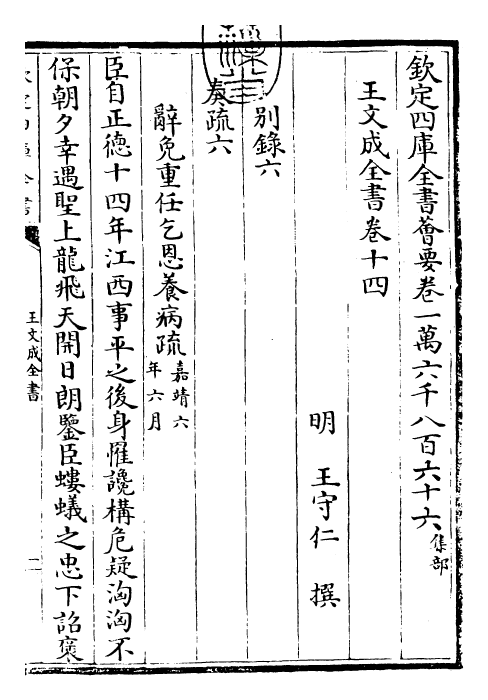 欽定四庫全書薈要卷一萬六千八百六十六集部
王文成全書卷十四
明 王守仁 撰
別錄六
奏疏六
辭免重任乞恩養病疏嘉靖六年六月
臣自正德十四年江西事平之後身罹讒構危疑洶洶不
保朝夕幸遇聖上龍飛天開日朗鑒臣螻蟻之忠下詔褒
王文成全書